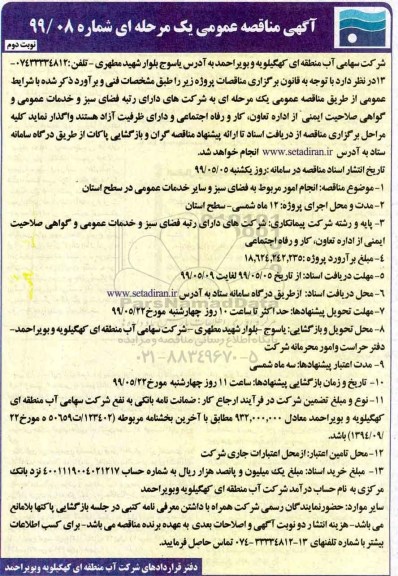 آگهی مناقصه عمومی یک مرحله ای شماره ۹۹/۰۸
نوبت دوم
شرکت سهامی آب منطقه ای کهگیلویه و بویراحمد به آدرس یاسوج بلوار شهید مطهری - تلفن: ۰۷۴۳۳۳۳۴۸۱۲-
۱۳ در نظر دارد با توجه به قانون برگزاری مناقصات پروژه زیر را طبق مشخصات فنی و برآورد ذکر شده با شرایط
عمومی از طریق مناقصه عمومی یک مرحله ای به شرکت های دارای رتبه فضای سبز و خدمات عمومی و
گواهی صلاحیت ایمنی از اداره تعاون، کار و رفاه اجتماعی و دارای ظرفیت آزاد هستند واگذار نماید کلیه
مراحل برگزاری مناقصه از دریافت اسناد تا ارائه پیشنهاد مناقصه گران و بازگشایی پاکات از طریق درگاه سامانه
ستاد به آدرس www.setadiran.ir انجام خواهد شد.
تاریخ انتشار اسناد مناقصه در سامانه: روز یکشنبه ۹۹/۰۵/۰۵
۱- موضوع مناقصه: انجام امور مربوط به فضای سبز و سایر خدمات عمومی در سطح استان
۲- مدت و محل اجرای پروژه: ۱۲ ماه شمسی- سطح استان
۳- پایه و رشته شرکت پیمانکاری: شرکت های دارای رتبه فضای سبز و خدمات عمومی و گواهی صلاحیت
ایمنی از اداره تعاون، کار و رفاه اجتماعی
۴- مبلغ برآورد پروژه: ۱۸,۶۲۴,۲۴۲,۲۳۵
۵- مهلت دریافت اسناد: از تاریخ ۹۹/۰۵/۰۵ لغایت ۹۹/۰۵/۰۹
۶- محل دریافت اسناد: از طریق درگاه سامانه ستاد به آدرس www.setadiran.ir
۷- مهلت تحویل پیشنهادها: حداکثر تا ساعت ۱۰ روز چهارشنبه مورخ ۹۹/۰۵/۲۲
۸- محل تحویل و بازگشایی: یاسوج -بلوار شهید مطهری - شرکت سهامی آب منطقه ای کهگیلویه و بویراحمد-
دفتر حراست وامور محرمانه شرکت
۹- مدت اعتبار پیشنهادها: سه ماه شمسی
۱۰- تاریخ و زمان بازگشایی پیشنهادها: ساعت ۱۱ روز چهارشنبه مورخ ۹۹/۰۵/۲۲
۱۱- نوع و مبلغ تضمین شرکت در فرآیند ارجاع کار: ضمانت نامه بانکی به نفع شرکت سهامی آب منطقه ای
کهگیلویه و بویراحمد معادل ۹۳۲,۰۰۰,۰۰۰ مطابق با آخرین بخشنامه مربوطه (۱۲۳۴۰۲/ت۵۰۶۵۹ ه مورخ ۲۲
/۱۳۹۴/۰۹) باشد.
۱۲- محل تامین اعتبار: ازمحل اعتبارات جاری شرکت
۱۳- مبلغ خرید اسناد: مبلغ یک میلیون و پانصد هزار ریال به شماره حساب ۴۰۰۱۱۱۹۰۰۴۰۲۱۲۱۷ نزد بانک
مرکزی به نام حساب درآمد شرکت آب منطقه ای کهگیلویه وبویراحمد
سایر موارد: حضورنمایندگان رسمی شرکت همراه با داشتن معرفی نامه کتبی در جلسه بازگشایی پاکتها بلامانع
می باشد- هزینه انتشار دو نوبت آگهی و اصلاحات بعدی به عهده برنده مناقصه می باشد- برای کسب اطلاعات
بیشتر با شماره تلفنهای ۱۳-۰۷۴-۳۳۳۳۴۸۱۲ تماس حاصل فرمایید.
دفتر قراردادهای شرکت آب منطقه ای کهگیلویه وبویراحمد
ParsNamadData
پایگاه اطلاع رسانی مناقصه و مزایده
۰۲۱-۸۸۳۴۹۶۷۰-۵